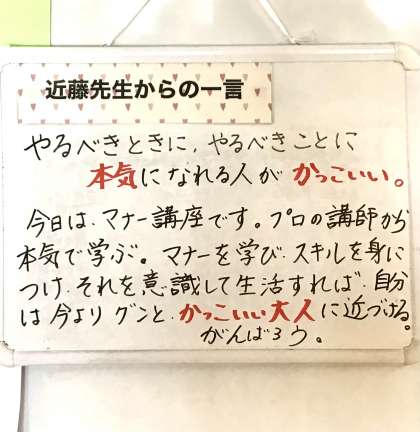 近藤先生からの一言
やるべきときに、やるべきことに
本気になれる人が かっこいい。
今日は、マナー講座です。プロの講師から
本気で学ぶ。マナーを学び、スキルを身に
つけ、それを意識して生活すれば、自分
は今より グンと、かっこいい大人に近づける。
がんばろう。